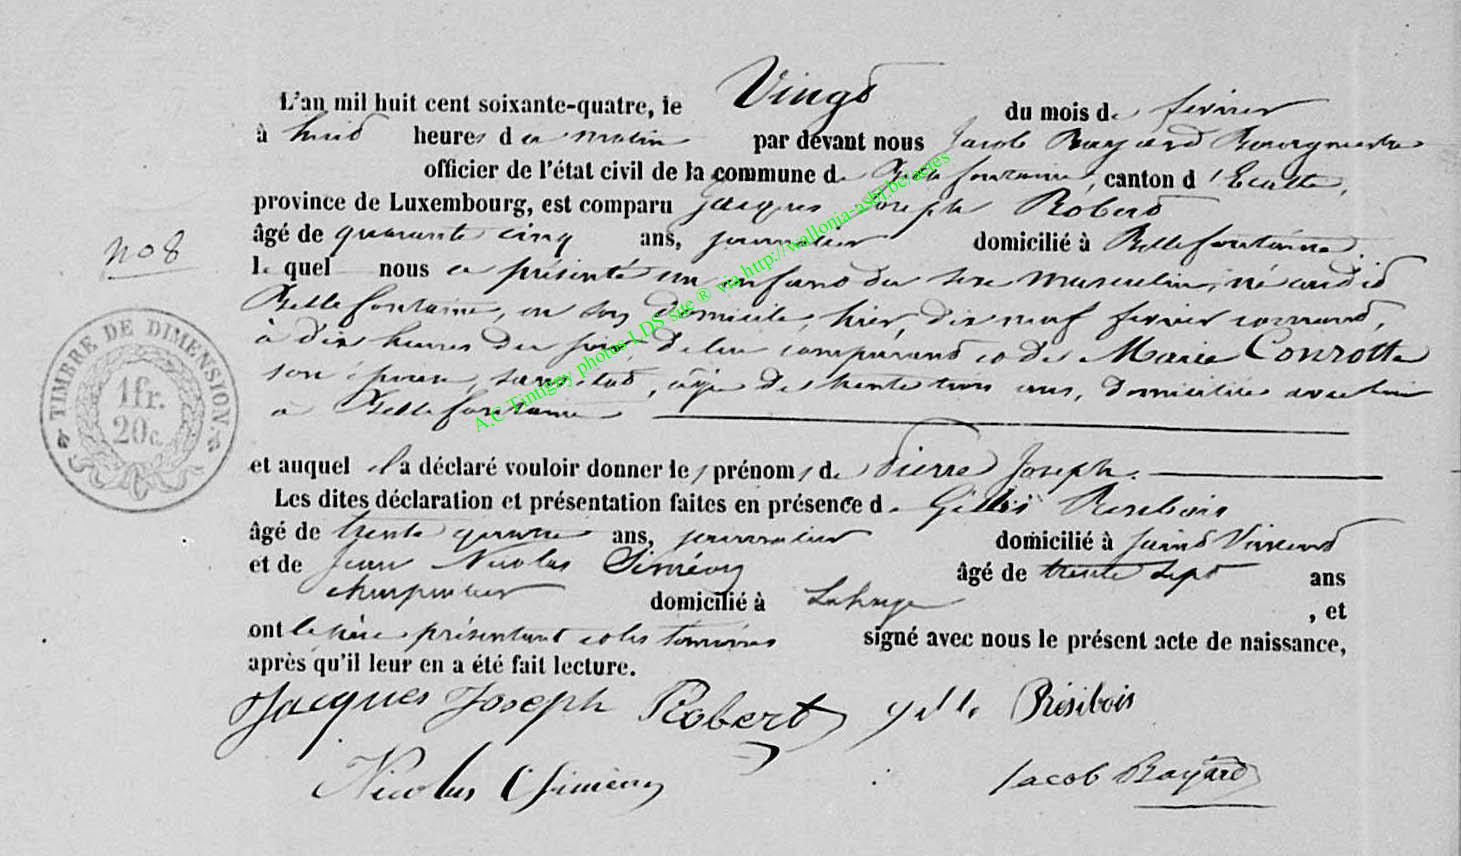 L'an mil huit cent soixante-quatre, le Vingt du mois de fevrier
à huit heures du matin par devant nous Jacob Bayard Bourgmestre
officier de l'état civil de la commune de Bellefontaine, canton d'Etalle,
province de Luxembourg, est comparu Jacques Joseph Robert
âgé de quarante cinq ans, journalier domicilié à Bellefontaine
no 8
lequel nous a présenté un enfant du sexe masculin, né audit
Bellefontaine, en son domicile, hier, dix neuf fevrier courant,
à dix heures du soir, de lui comparant et de Marie Conrotte
son épouse, sans état, âgée de trente trois ans, domiciliée avec lui
à Bellefontaine
TIMBRE DE DIMENSION
1 fr.
20 c.
et auquel il a déclaré vouloir donner les prénoms de Pierre Joseph.
Les dites déclaration et présentation faites en présence de Gilles Resibois
âgé de trente quatre ans, journalier domicilié à Saint Vincent
et de Jean Nicolas Siméon âgé de trente sept ans
charpentier domicilié à Lahage, et
ont le père présentant et les témoins signé avec nous le présent acte de naissance,
après qu'il leur en a été fait lecture.
Jacques Joseph Robert Gille Résibois
Nicolas Siméon Jacob Bayard
A.C Tintigny photos LDS site ® via http://wallonia-asbl.be/actes